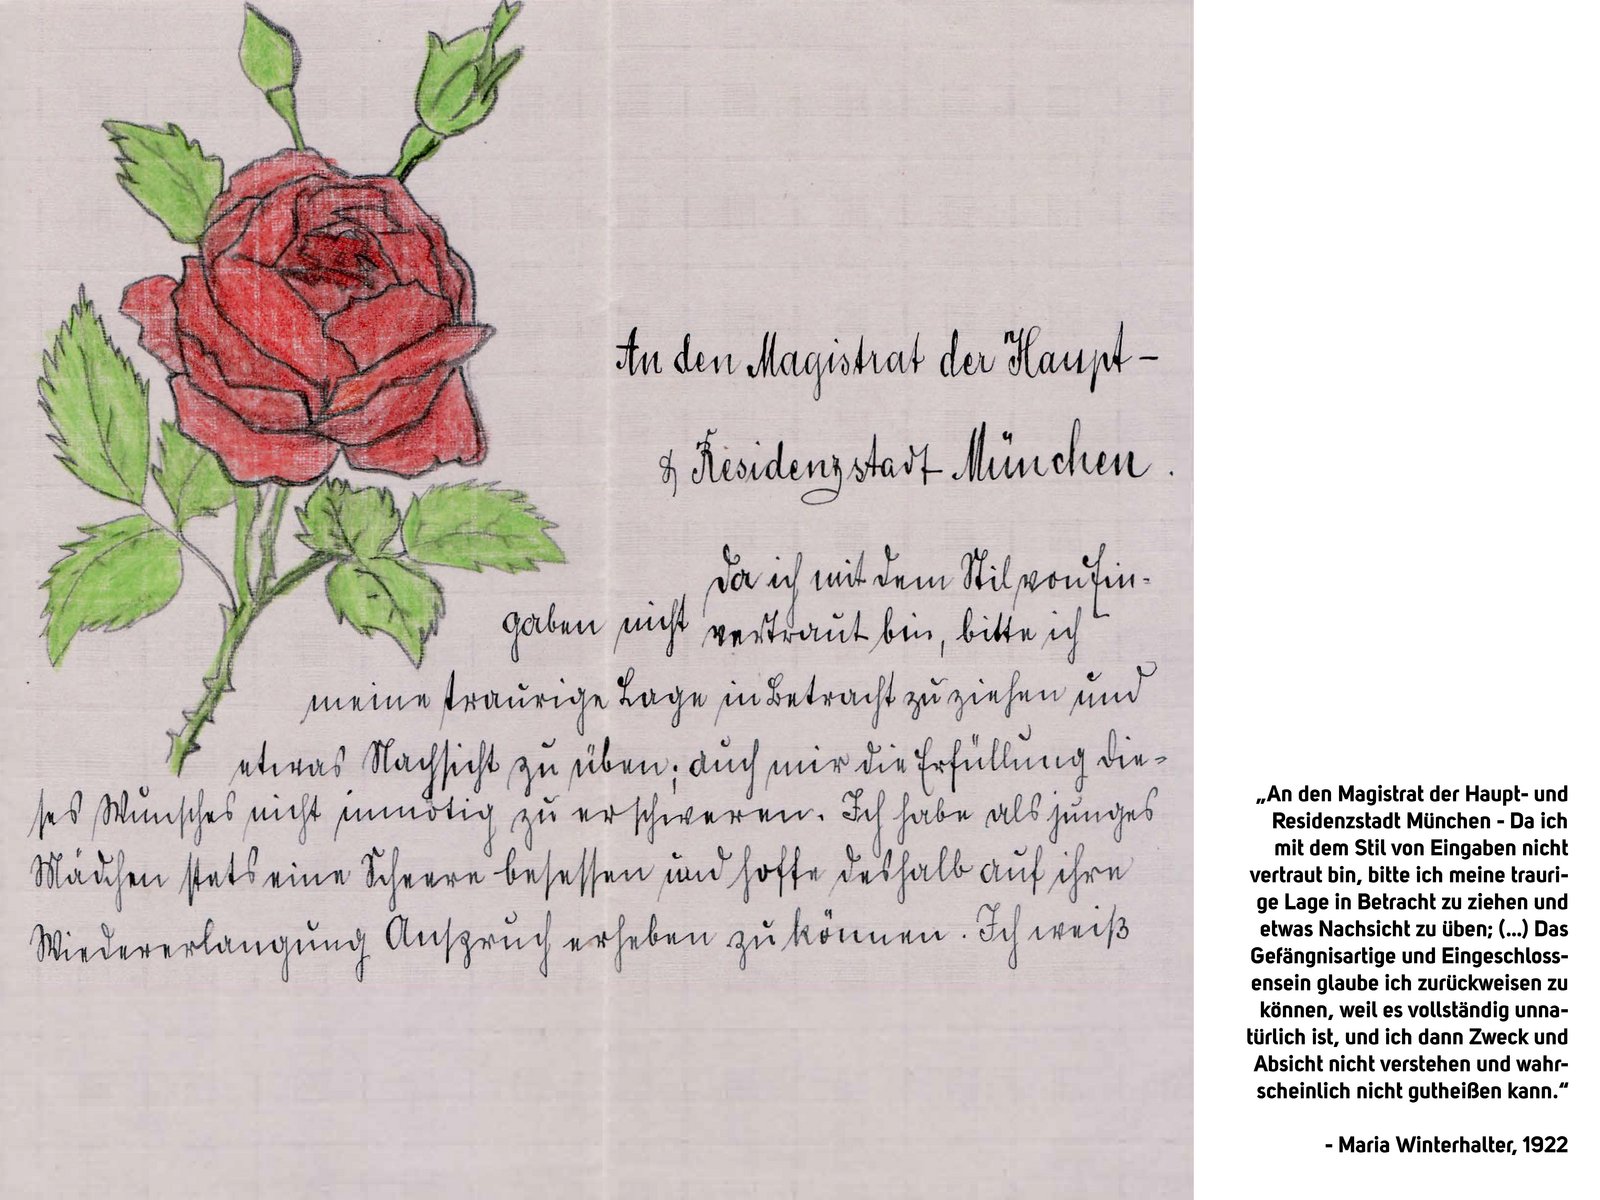 An den Magistrat der Haupt-
& Residenzstadt München.
Da ich mit dem Stil von Ein-
gaben nicht vertraut bin, bitte ich
meine traurige Lage in Betracht zu ziehen und
etwas Nachsicht zu üben; auch mir die Erfüllung die-
ses Wunsches nicht unnötig zu erschweren. Ich habe als junges
Mädchen stets eine Scheere besessen und hoffe deshalb auf ihre
Wiedererlangung Anspruch erheben zu können. Ich weiß
„An den Magistrat der Haupt- und
Residenzstadt München - Da ich
mit dem Stil von Eingaben nicht
vertraut bin, bitte ich meine trauri-
ge Lage in Betracht zu ziehen und
etwas Nachsicht zu üben; (...) Das
Gefängnisartige und Eingeschloss-
ensein glaube ich zurückweisen zu
können, weil es vollständig unna-
türlich ist, und ich dann Zweck und
Absicht nicht verstehen und wahr-
scheinlich nicht gutheißen kann.“
- Maria Winterhalter, 1922